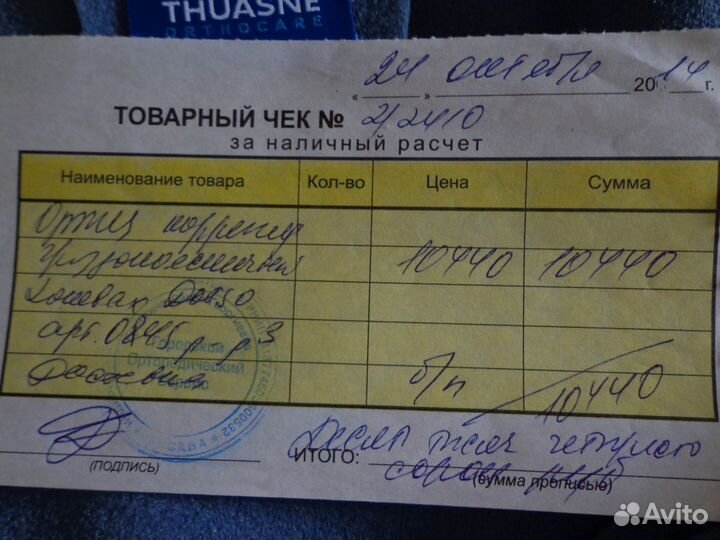 THUASNE
ORTHOCARE
« 24 » октября 2014 г.
ТОВАРНЫЙ ЧЕК № 2/2410
за наличный расчет
Наименование товара Кол-во Цена Сумма
Ортез
10440 10440
Дорсо
арт. 0845 р-р 3
Доставка б/п 10440
Городской
Ортопедический
(ПОДПИСЬ)
ИТОГО: Десять тысяч четыреста
сорок руб
(сумма прописью)
Avito